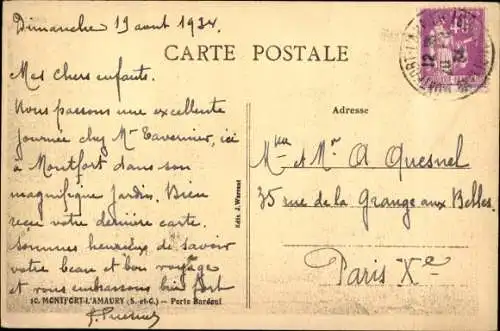 Dimanche 19 aout 1934.
CARTE POSTALE
Mes chers enfants.
Nous passons une excellente
journée chez Mr Tavernier, ici
à Montfort dans son
magnifique jardin. Bien
reçu votre dernière carte.
Sommes heureux de savoir
votre beau et bon voyage
et vous embrassons bien fort
10. MONTFORT-L'AMAURY (S.-et-O.) — Porte Bardoul
Edit. J. Warenet
Adresse
et Mr A Quesnel
35 rue de la Grange aux Belles.
Paris Xe